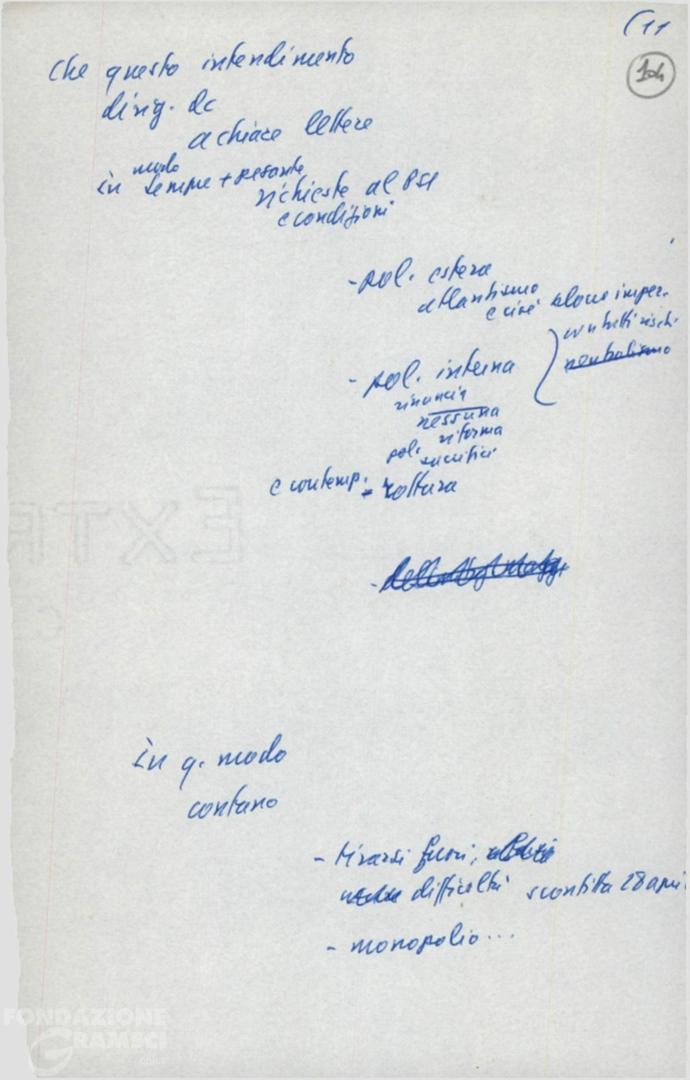 (11
104
Che questo intendimento
dirig. dc
a chiare lettere
in modo sempre + pesante
richieste al PSI
e condizioni
- pol. estera
atlantismo
e cioè imper.
con tutti rischi
neutralismo
- pol. interna
rinuncia
nessuna
riforma
pol. sacrifici
e contemp. rottura
in q. modo
contano
- tirarsi fuori,
difficoltà sconfitta 28 apri
- monopolio...
EXTR
FONDAZIONE
GRAMSCI